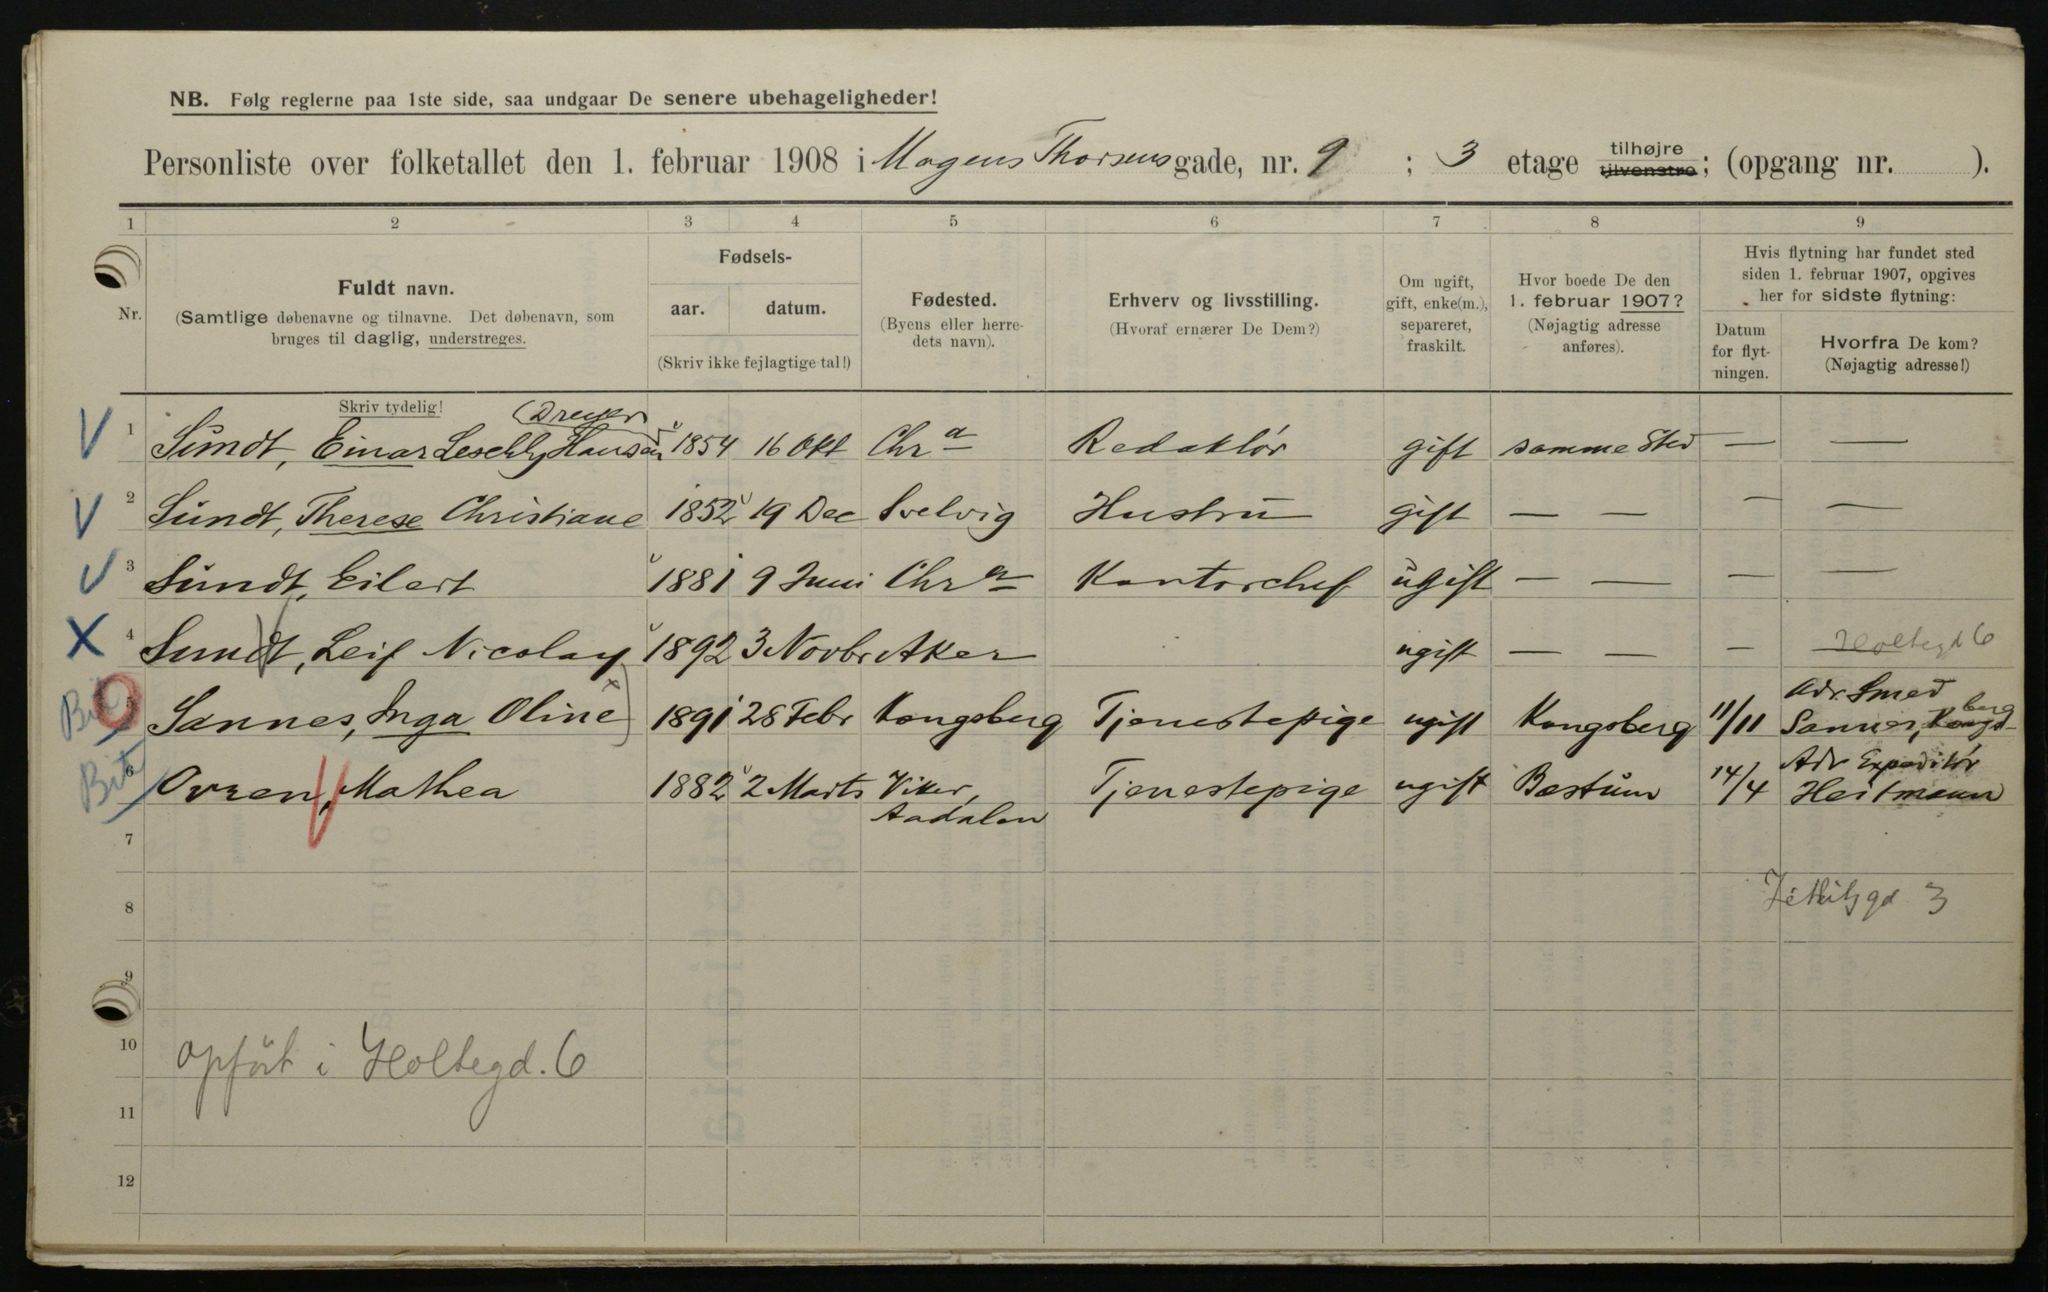 NB. Følg reglerne paa 1ste side, saa undgaar De senere ubehageligheder!
Personliste over folketallet den 1. februar 1908 i Mogens Thorsens gade, nr. 9 ; 3 etage tilhøjre tilvenstre; (opgang nr. ).
1 2 3 4 5 6 7 8 9
Nr.
Fuldt navn.
(Samtlige døbenavne og tilnavne. Det døbenavn, som
bruges til daglig, understreges.
Skriv tydelig!
Fødsels-
aar. datum.
(Skriv ikke fejlagtige tal!)
Fødested.
(Byens eller herre-
dets navn).
Erhverv og livsstilling.
(Hvoraf ernærer De Dem?)
Om ugift,
gift, enke(m.),
separeret,
fraskilt.
Hvor boede De den
1. februar 1907?
(Nøjagtig adresse
anføres).
Hvis flytning har fundet sted
siden 1. februar 1907, opgives
her for sidste flytning:
Datum
for flyt-
ningen.
Hvorfra De kom?
(Nøjagtig adresse!)
(Dreyer
1 Sundt, Einar Hansen 1854 16 Okt Chra Redaktör gift samme Sted — —
2 Sundt, Therese Christiane 1852 19 Dec Svelvig Hustru gift — — — —
3 Sundt, Eilert 1881 9 Juni Chra Kontorchef ugift — — — —
4 Sundt, Leif Nicolay 1892 3 Novbr Aker ugift — — — Holtegd 6
Adr. Smed
5 Sannes, Inga Oline 1891 28 Febr Kongsberg Tjenestepige ugift Kongsberg 11/11 Sannes, Kongs-
berg
Adr Expeditör
6 Ovren, Mathea 1882 2 Marts Viker, Tjenestepige ugift Bestum 14/4 Heitmann
Aadalen
7
8 3
9
10 opfört i Holtegd. 6
11
12